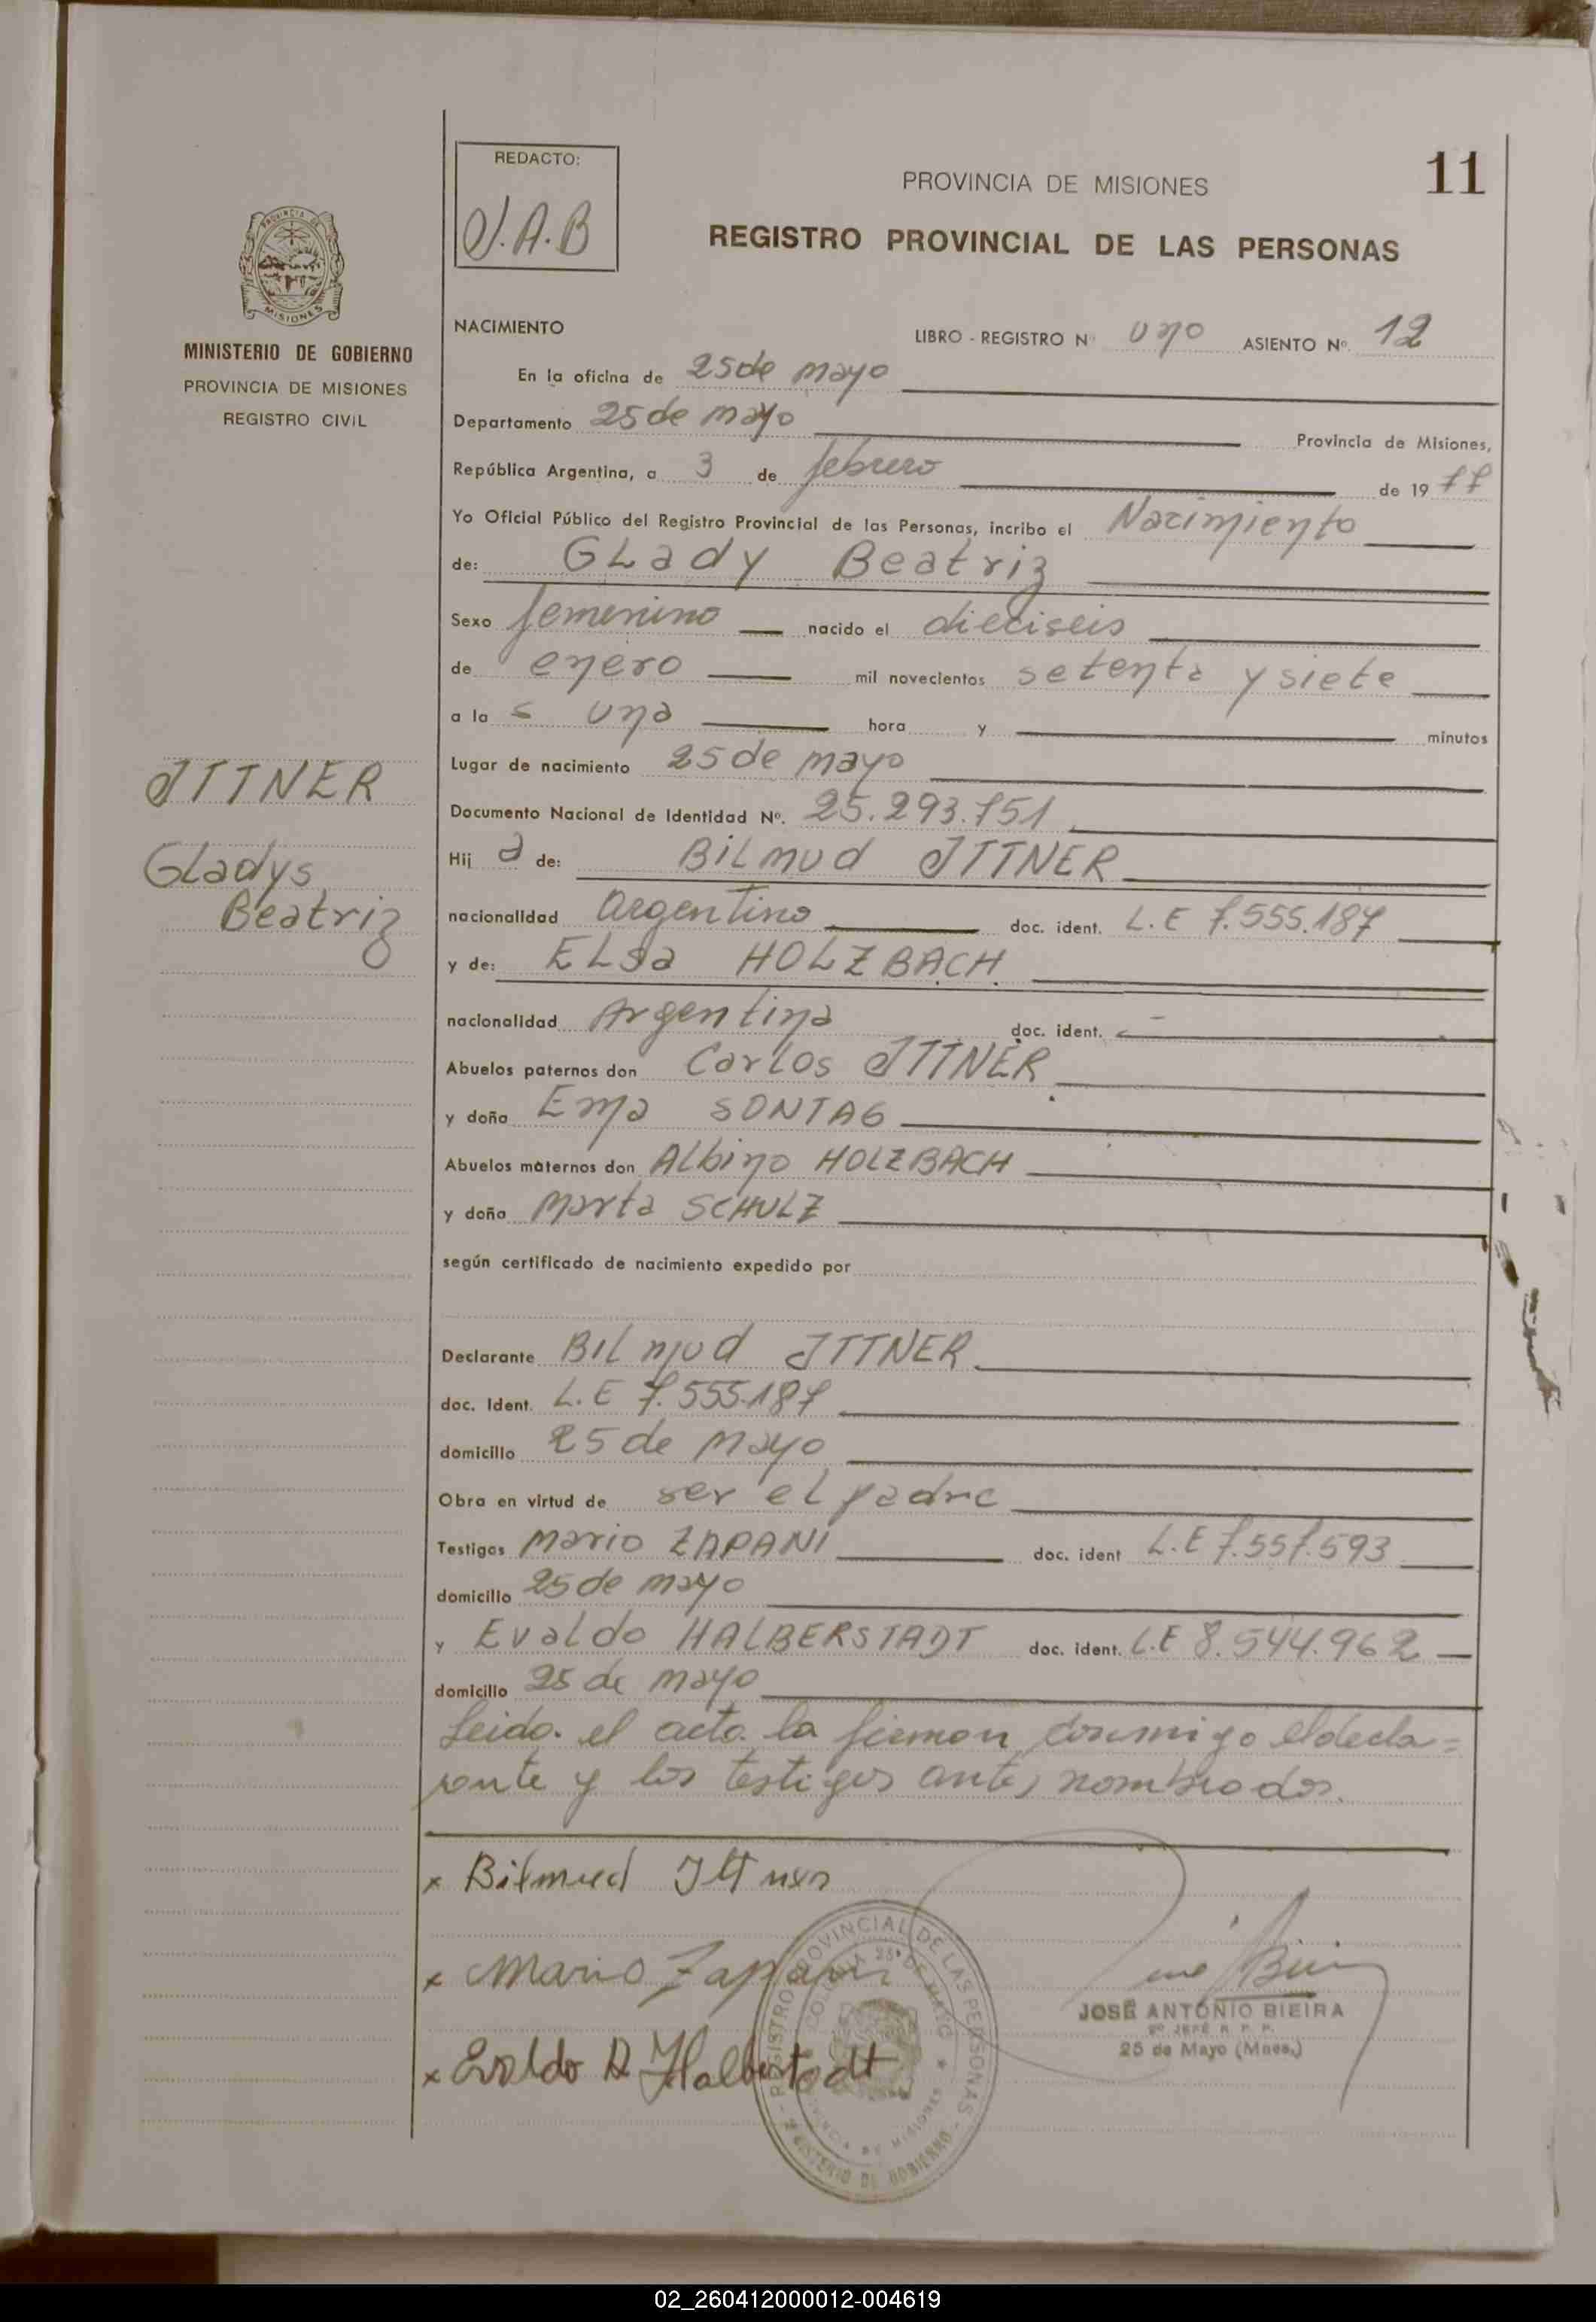 11
REDACTO:
J.A.B
PROVINCIA DE MISIONES
REGISTRO PROVINCIAL DE LAS PERSONAS
PROVINCIA DE
MISIONES
MINISTERIO DE GOBIERNO
PROVINCIA DE MISIONES
REGISTRO CIVIL
NACIMIENTO LIBRO - REGISTRO Nº uno ASIENTO Nº. 12
En la oficina de 25 de mayo
Departamento 25 de mayo Provincia de Misiones,
República Argentina, a 3 de febrero de 19 77
Yo Oficial Público del Registro Provincial de las Personas, incribo el Nacimiento
de: GLady Beatriz
Sexo femenino nacido el dieciseis
de enero mil novecientos setenta y siete
a la s una hora y minutos
Lugar de nacimiento 25 de mayo
ITTNER
Documento Nacional de Identidad Nº. 25.293.751
Gladys
Beatriz
Hij a de: BiLmud ITTNER
nacionalidad Argentino doc. ident. L.E 7.555.187
y de: ELsa HOLZBACH
nacionalidad Argentina doc. ident. —
Abuelos paternos don CarLos ITTNER
y doña Ema SONTAG
Abuelos maternos don ALbino HOLZBACH
y doña Marta SCHULZ
según certificado de nacimiento expedido por
Declarante BiLmud ITTNER
doc. Ident. L.E 7.555.187
domicilio 25 de Mayo
Obra en virtud de ser el padre
Testigos Mario ZAPANI doc. ident L.E 7.557.593
domicilio 25 de mayo
y EvaLdo HALBERSTADT doc. ident. L.E 8.544.962
domicilio 25 de mayo
Leida el acta la firman conmigo el decla=
rante y los testigos antes nombrados.
x Bilmud Ittner
x Mario Zapani
x Evaldo A Halberstadt
REGISTRO PROVINCIAL DE LAS PERSONAS
COLONIA 25 DE MAYO
PROVINCIA DE MISIONES
MINISTERIO DE GOBIERNO
JOSÉ ANTONIO BIEIRA
2º JEFE R. P. P.
25 de Mayo (Mnes.)
02_260412000012-004619